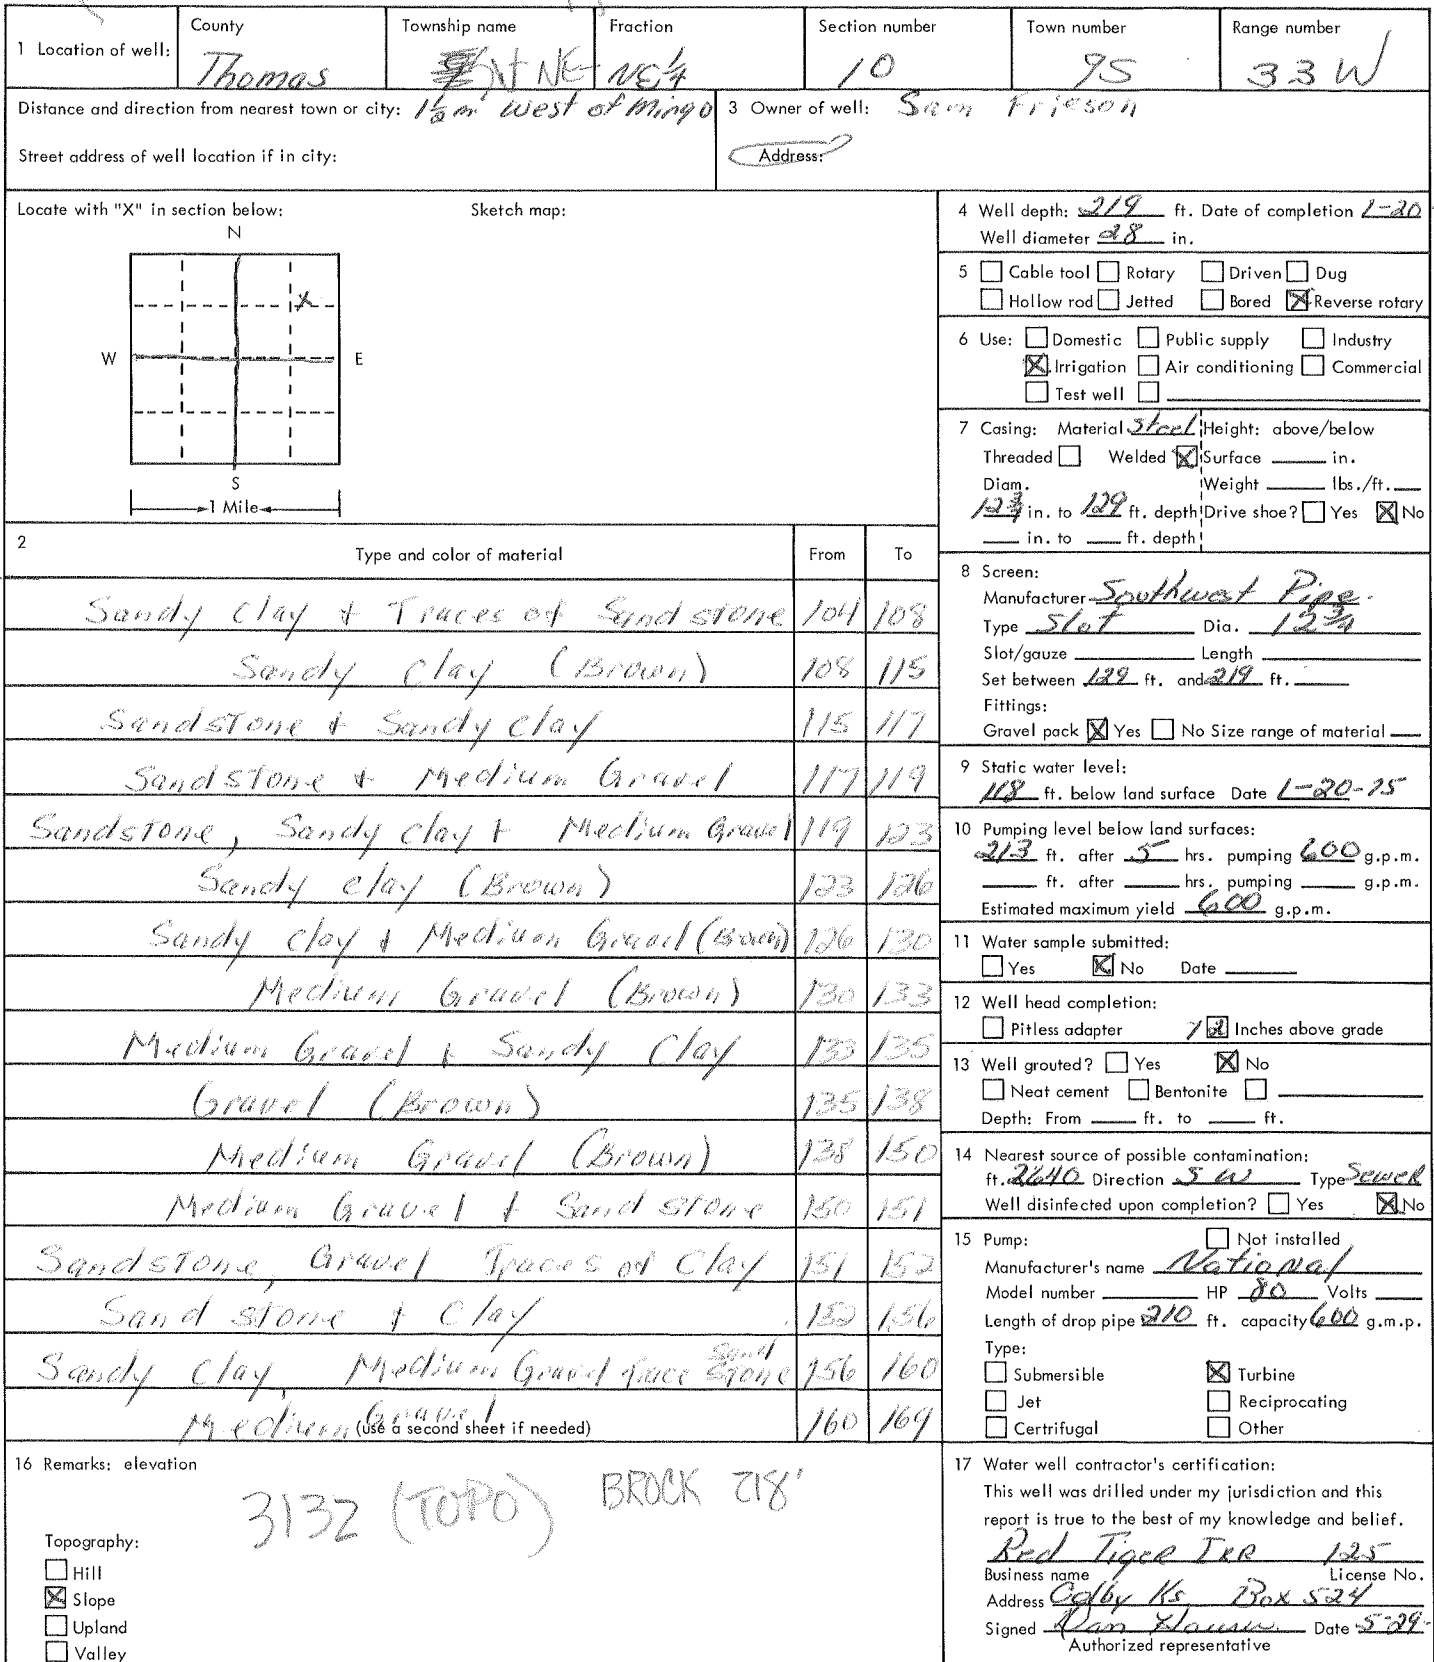 1 Location of well: County Thomas Township name N NE Fraction NE 1/4 Section number 10 Town number 9S Range number 33W
Distance and direction from nearest town or city: 1 1/2 mi West of Mingo
3 Owner of well: Sam Frieson
Street address of well location if in city:
Address:
Locate with "X" in section below: Sketch map:
N
X
W E
S
1 Mile
2 Type and color of material From To
Sandy Clay + Traces of Sandstone 104 108
Sandy Clay (Brown) 108 115
Sandstone + Sandy Clay 115 117
Sandstone + Medium Gravel 117 119
Sandstone, Sandy Clay + Medium Gravel 119 123
Sandy Clay (Brown) 123 126
Sandy Clay + Medium Gravel (Brown) 126 130
Medium Gravel (Brown) 130 133
Medium Gravel + Sandy Clay 133 135
Gravel (Brown) 135 138
Medium Gravel (Brown) 138 150
Medium Gravel + Sandstone 150 151
Sandstone, Gravel Traces of Clay 151 152
Sandstone + Clay 152 156
Sandy Clay, Medium Gravel trace Sandstone 156 160
Medium Gravel (use a second sheet if needed) 160 169
4 Well depth: 219 ft. Date of completion 1-20
Well diameter 28 in.
5 Cable tool Rotary Driven Dug
Hollow rod Jetted Bored X Reverse rotary
6 Use: Domestic Public supply Industry
X Irrigation Air conditioning Commercial
Test well
7 Casing: Material Steel Height: above/below
Threaded Welded X Surface in.
Diam. Weight lbs./ft.
12 3/4 in. to 129 ft. depth Drive shoe? Yes X No
in. to ft. depth
8 Screen:
Manufacturer Southwest Pipe.
Type Slot Dia. 12 3/4
Slot/gauze Length
Set between 129 ft. and 219 ft.
Fittings:
Gravel pack X Yes No Size range of material
9 Static water level:
118 ft. below land surface Date 1-20-75
10 Pumping level below land surfaces:
213 ft. after 5 hrs. pumping 600 g.p.m.
ft. after hrs. pumping g.p.m.
Estimated maximum yield 600 g.p.m.
11 Water sample submitted:
Yes X No Date
12 Well head completion:
Pitless adapter 12 Inches above grade
13 Well grouted? Yes X No
Neat cement Bentonite
Depth: From ft. to ft.
14 Nearest source of possible contamination:
ft. 2640 Direction SW Type Sewer
Well disinfected upon completion? Yes X No
15 Pump: Not installed
Manufacturer's name National
Model number HP 80 Volts
Length of drop pipe 210 ft. capacity 600 g.m.p.
Type:
Submersible X Turbine
Jet Reciprocating
Certrifugal Other
16 Remarks: elevation
3132 (TOPO) BROCK 218'
Topography:
Hill
X Slope
Upland
Valley
17 Water well contractor's certification:
This well was drilled under my jurisdiction and this
report is true to the best of my knowledge and belief.
Red Tiger Irr 125
Business name License No.
Address Colby Ks Box 524
Signed Dan Date 5-29-
Authorized representative